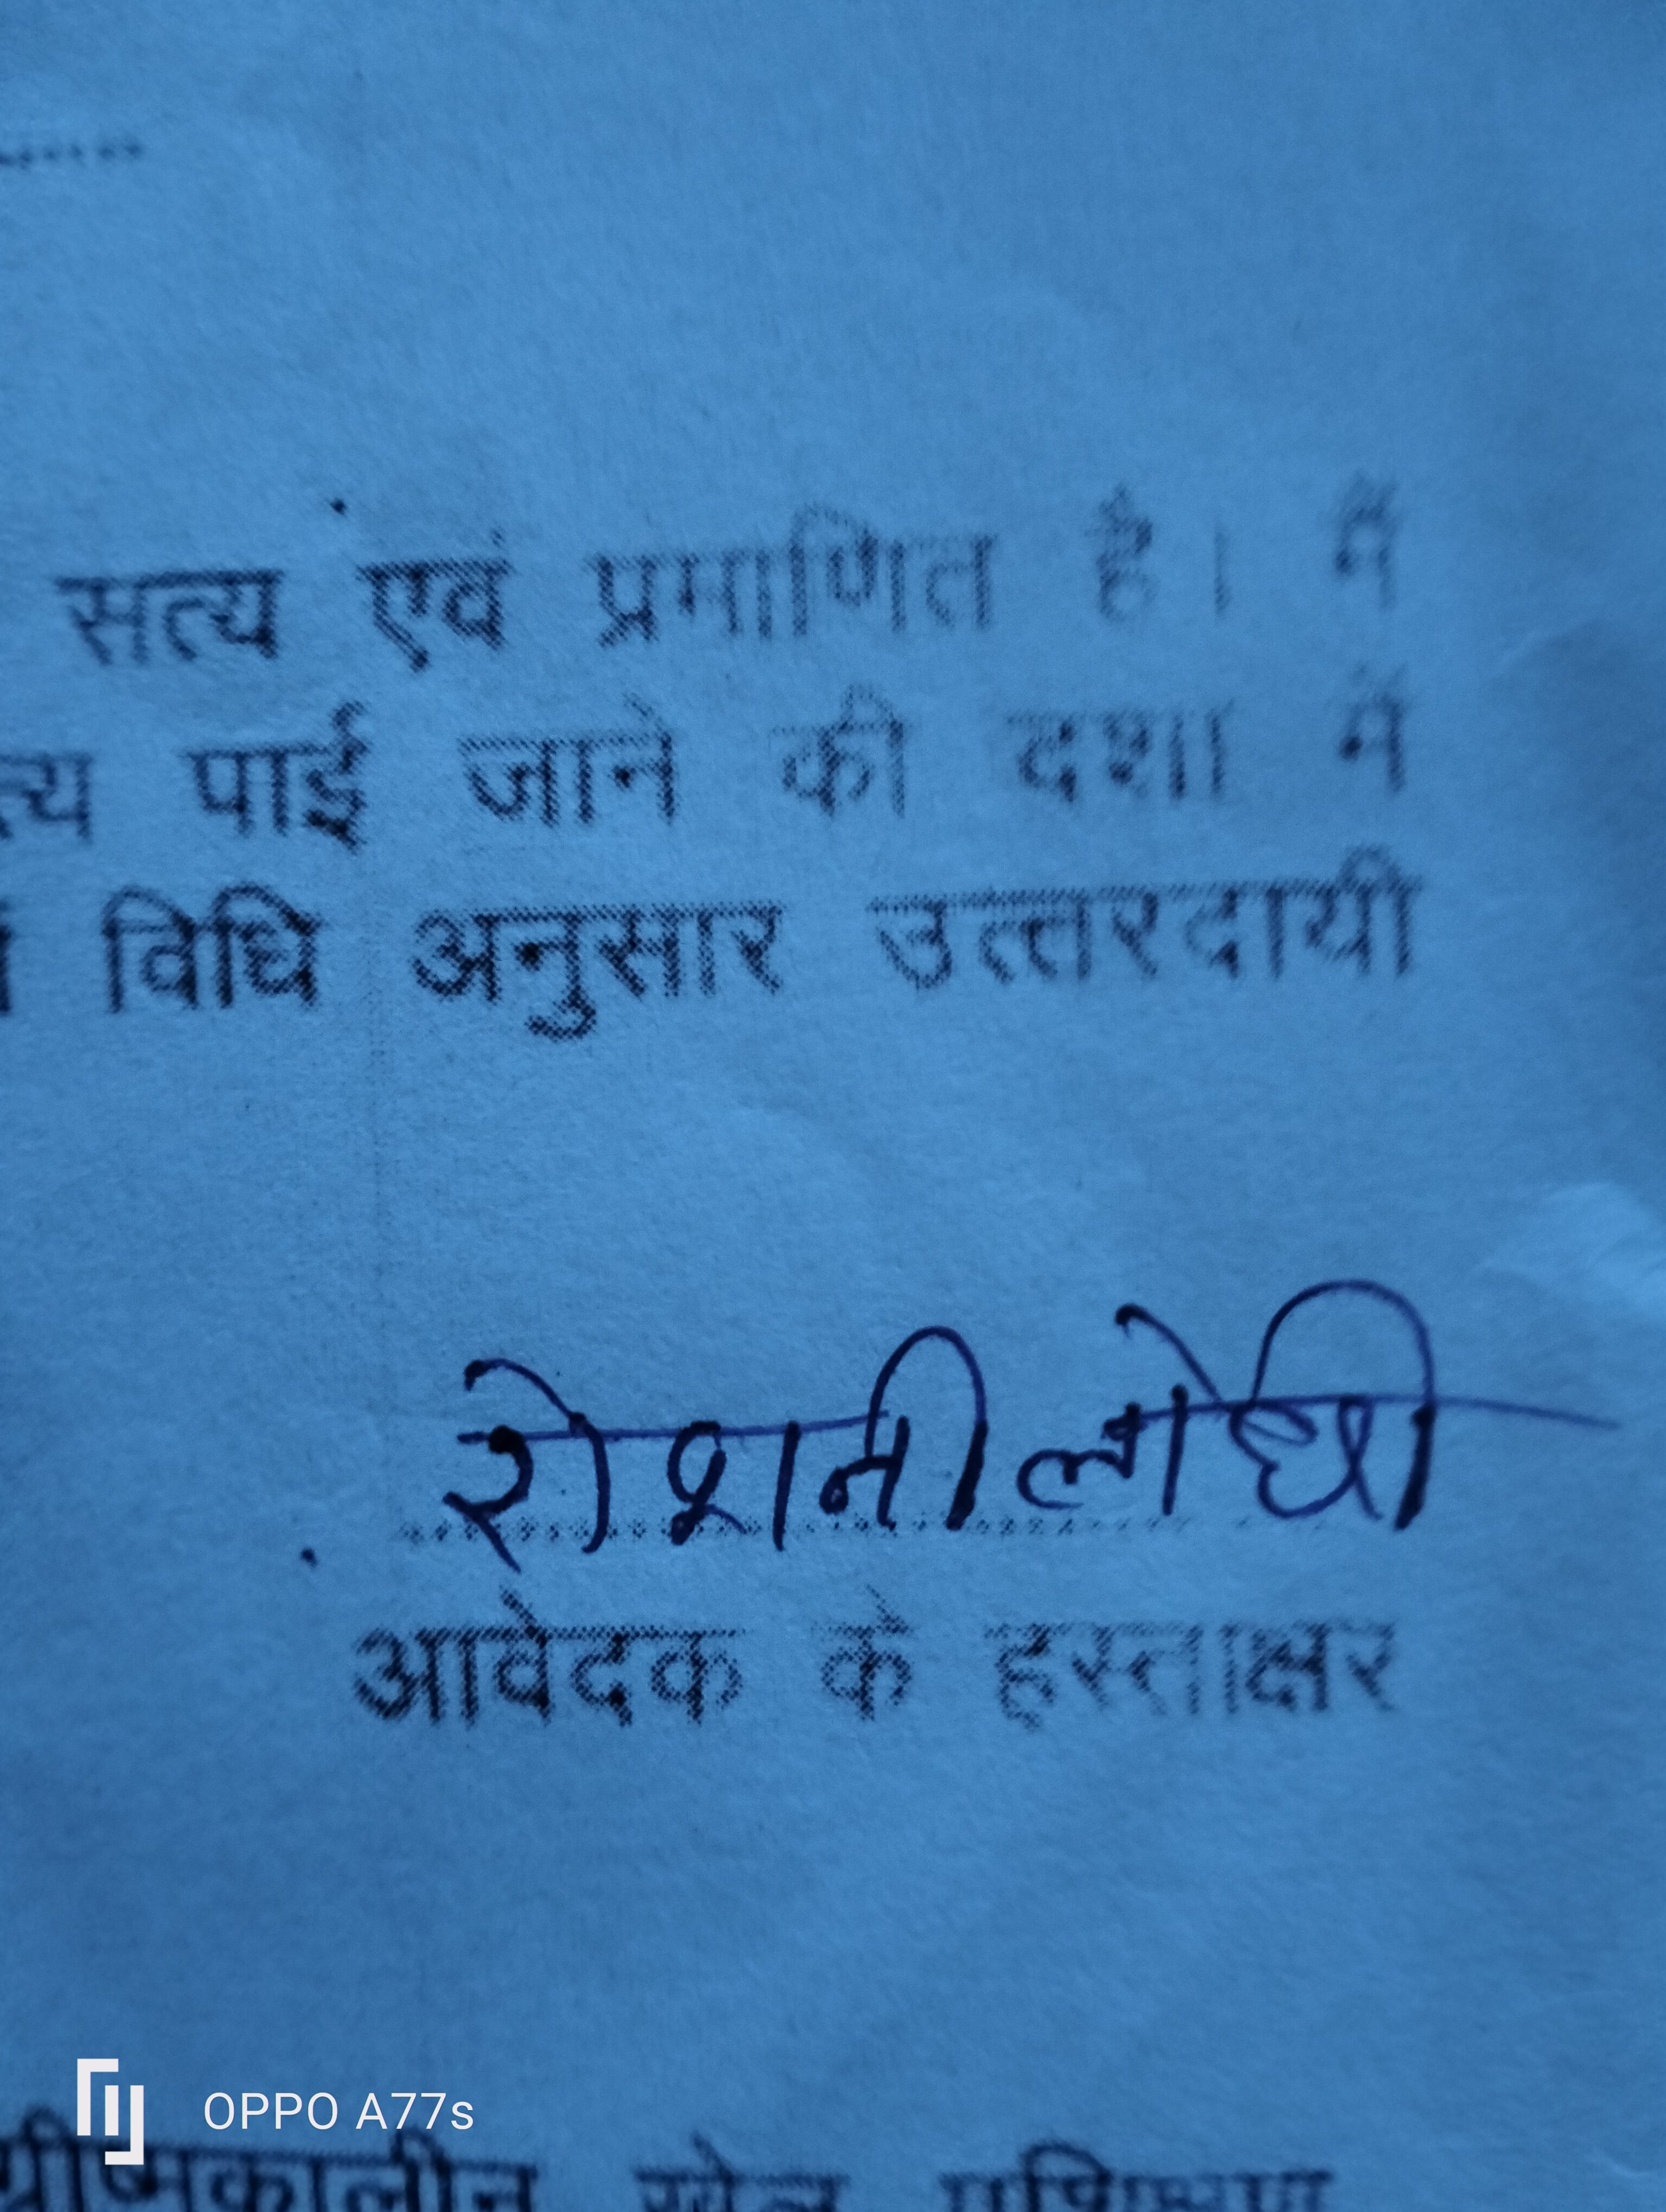 सत्य एंव प्रमाणित है। मैं
पाई जाने की दशा में
विधि अनुसार उत्तरदायी
रोशनी लोधी
आवेदक के हस्ताक्षर
OPPO A77s
ग्रीष्मकालीन खेल प्रशिक्षण